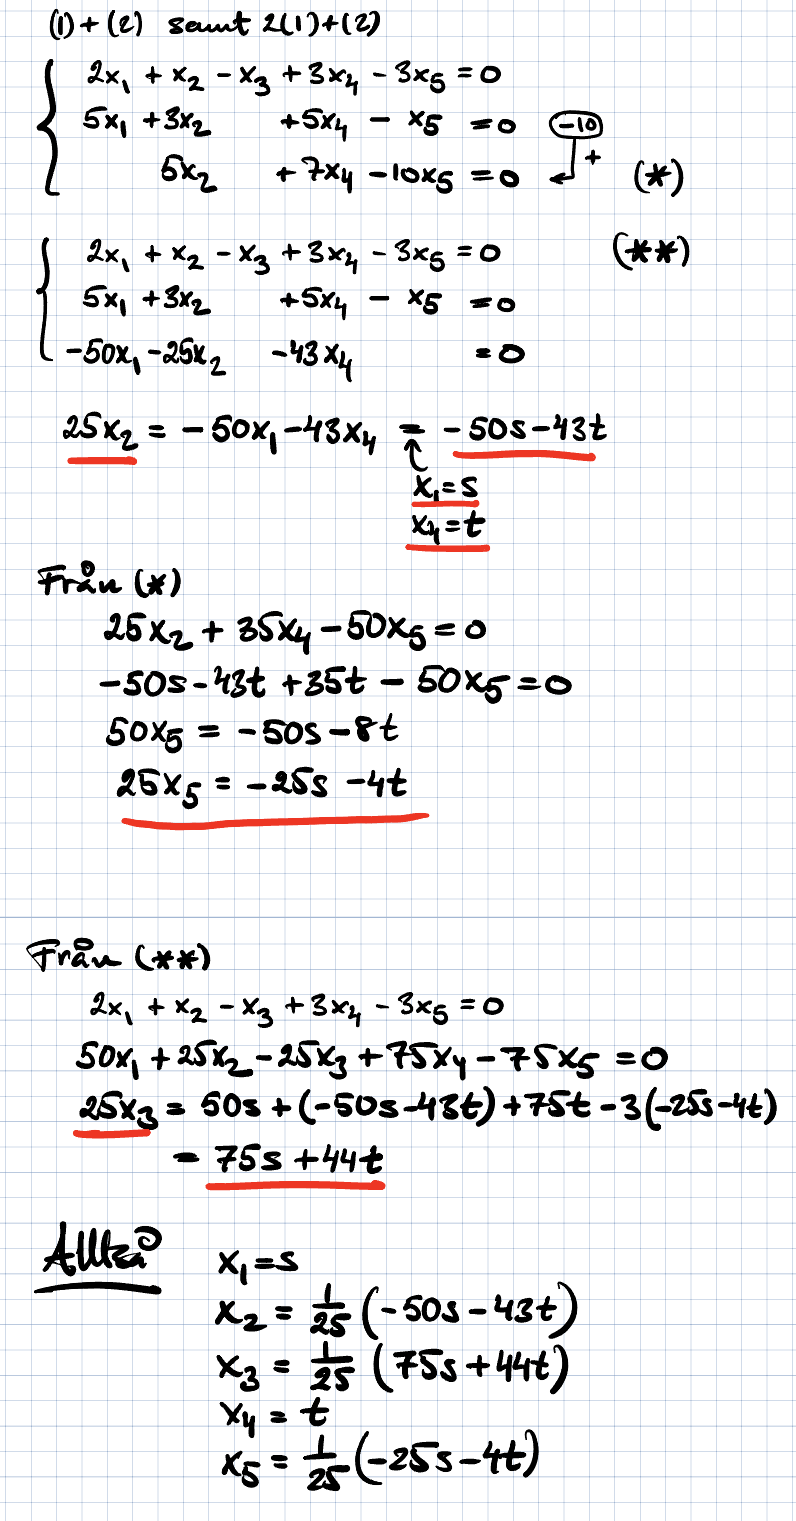 (1)+(2) samt 2(1)+(2)
2x₁ + x₂ - x₃ + 3x₄ - 3x₅ = 0
5x₁ + 3x₂ + 5x₄ - x₅ = 0 -10
5x₂ + 7x₄ - 10x₅ = 0 + (*)
2x₁ + x₂ - x₃ + 3x₄ - 3x₅ = 0 (**)
5x₁ + 3x₂ + 5x₄ - x₅ = 0
-50x₁ - 25x₂ - 43x₄ = 0
25x₂ = -50x₁ - 43x₄ = -50s - 43t
x₁ = s
x₄ = t
Från (*)
25x₂ + 35x₄ - 50x₅ = 0
-50s - 43t + 35t - 50x₅ = 0
50x₅ = -50s - 8t
25x₅ = -25s - 4t
Från (**)
2x₁ + x₂ - x₃ + 3x₄ - 3x₅ = 0
50x₁ + 25x₂ - 25x₃ + 75x₄ - 75x₅ = 0
25x₃ = 50s + (-50s - 43t) + 75t - 3(-25s - 4t)
= 75s + 44t
Alltså x₁ = s
x₂ = 1/25 (-50s - 43t)
x₃ = 1/25 (75s + 44t)
x₄ = t
x₅ = 1/25 (-25s - 4t)